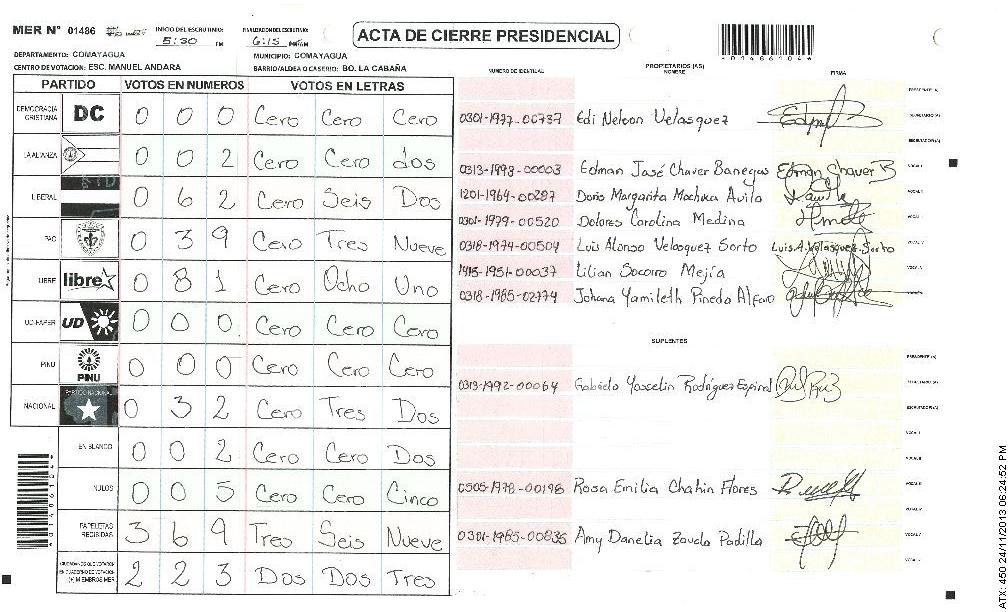 MER N° 01486
INICIO DEL ESCRUTINIO: 5:30 PM
FINALIZACION DEL ESCRUTINIO: 6:15 PM/AM
ACTA DE CIERRE PRESIDENCIAL
DEPARTAMENTO: COMAYAGUA
MUNICIPIO: COMAYAGUA
CENTRO DE VOTACION: ESC. MANUEL ANDARA
BARRIO/ALDEA O CASERIO: BO. LA CABAÑA
PARTIDO VOTOS EN NUMEROS VOTOS EN LETRAS
DEMOCRACIA CRISTIANA DC 0 0 0 Cero Cero Cero
LA ALIANZA 0 0 2 Cero Cero dos
LIBERAL 0 6 2 Cero Seis Dos
PAC 0 3 9 Cero Tres Nueve
LIBRE libre 0 8 1 Cero Ocho Uno
UD-FAPER UD 0 0 0 Cero Cero Cero
PINU PINU 0 0 0 Cero Cero Cero
NACIONAL PARTIDO NACIONAL 0 3 2 Cero Tres Dos
EN BLANCO 0 0 2 Cero Cero Dos
NULOS 0 0 5 Cero Cero Cinco
PAPELETAS RECIBIDAS 3 6 9 Tres Seis Nueve
CIUDADANOS QUE VOTARON EN CUADERNO DE VOTACION (+) MIEMBROS MER 2 2 3 Dos Dos Tres
NUMERO DE IDENTIDAD
PROPIETARIOS (AS)
NOMBRE
FIRMA
PRESIDENTE (A)
0301-1977-00737 Edi Nelson Velasquez SECRETARIO (A)
ESCRUTADOR (A)
0313-1978-00003 Edman José Chaver Banegas Edman Chaver B VOCAL I
1201-1964-00287 Doris Margarita Machuca Avila
0301-1979-00520 Dolores Carolina Medina
0318-1974-00504 Luis Alonso Velasquez Sorto Luis A. Velasquez Sorto
1415-1951-00037 Lilian Socorro Mejía
0318-1985-02774 Johana Yamileth Pineda Alfaro
SUPLENTES
PRESIDENTE (A)
0313-1992-00064 Yosselin Rodríguez Espinal SECRETARIO (A)
ESCRUTADOR (A)
VOCAL I
VOCAL II
0505-1978-00196 Rosa Emilia Chahin Flores VOCAL III
VOCAL IV
0301-1985-00836 Amy Danelia Zavala Padilla VOCAL V
ATX: 450 24/11/2013 06:24:52 PM